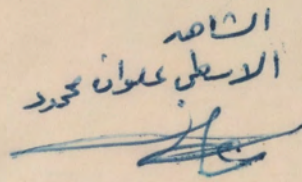 الشاهد
الاسطى علوان محمود